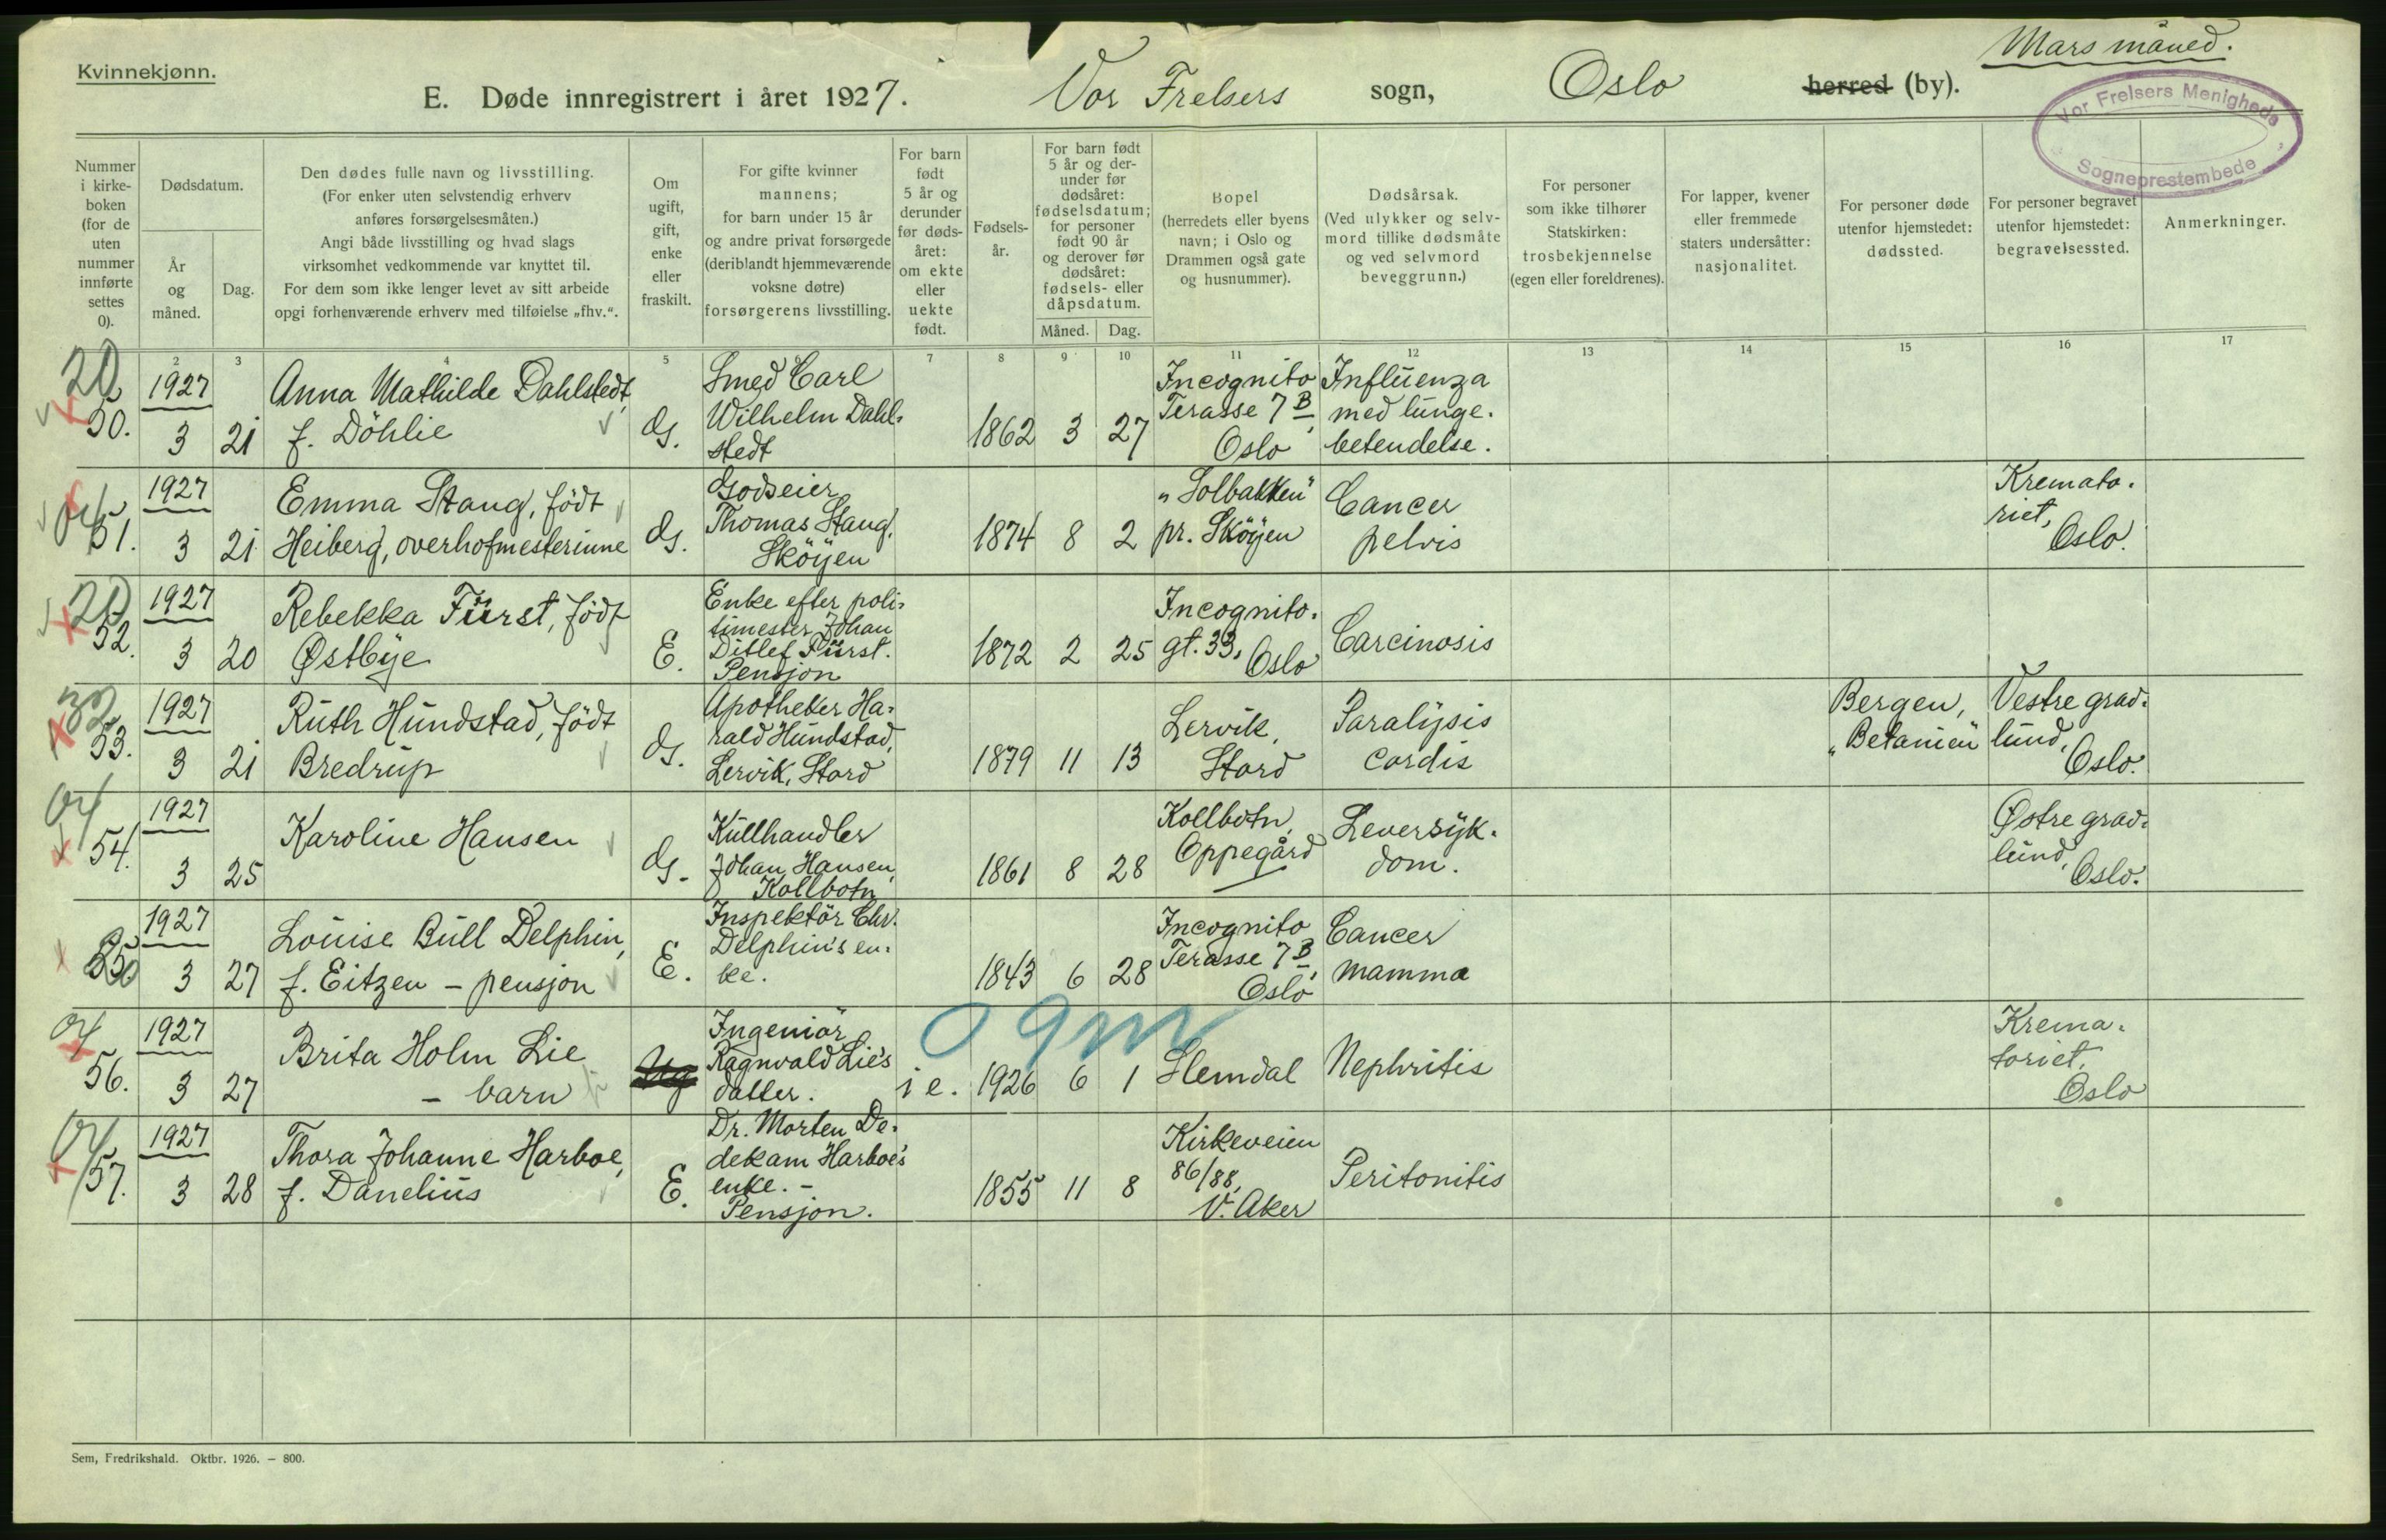 Mars måned.
Kvinnekjønn.
E. Døde innregistrert i året 1927. Vor Frelsers sogn, Oslo herred (by).
Vor Frelsers Menigheds
Sogneprestembede
Nummer i kirke-boken (for de uten nummer innførte settes 0).
Dødsdatum.
År og måned.
Dag.
Den dødes fulle navn og livsstilling.
(For enker uten selvstendig erhverv
anføres forsørgelsesmåten.)
Angi både livsstilling og hvad slags
virksomhet vedkommende var knyttet til.
For dem som ikke lenger levet av sitt arbeide
opgi forhenværende erhverv med tilføielse „fhv.“.
Om
ugift,
gift,
enke
eller
fraskilt.
For gifte kvinner
mannens;
for barn under 15 år
og andre privat forsørgede
(deriblandt hjemmeværende
voksne døtre)
forsørgerens livsstilling.
For barn
født
5 år og
derunder
før døds-
året:
om ekte
eller
uekte
født.
Fødsels-
år.
For barn født
5 år og der-
under før
dødsåret:
fødselsdatum;
for personer
født 90 år
og derover før
dødsåret:
fødsels- eller
dåpsdatum.
Måned. Dag.
Bopel
(herredets eller byens
navn; i Oslo og
Drammen også gate
og husnummer).
Dødsårsak.
(Ved ulykker og selv-
mord tillike dødsmåte
og ved selvmord
beveggrunn.)
For personer
som ikke tilhører
Statskirken:
trosbekjennelse
(egen eller foreldrenes).
For lapper, kvener
eller fremmede
staters undersåtter:
nasjonalitet.
For personer døde
utenfor hjemstedet:
dødssted.
For personer begravet
utenfor hjemstedet:
begravelsessted.
Anmerkninger.
2 3 4 5 7 8 9 10 11 12 13 14 15 16 17
20
50.
1927
3 21
Anna Mathilde Dahlstedt,
f. Döhlie
G.
Smed Carl
Wilhelm Dahl-
stedt
1862 3 27
Incognito
Terasse 7 B,
Oslo
Influenza
med lunge-
betendelse.
51.
1927
3 21
Emma Stang, født
Heiberg, overhofmesterinne
G.
Godseier
Thomas Stang,
Sköyen
1874 8 2
„Solbakken“
pr. Sköyen
Cancer
pelvis
Kremato-
riet,
Oslo.
20
52.
1927
3 20
Rebekka Fürst, født
Østbye
E.
Enke efter poli-
timester Johan
Ditlef Fürst.
Pensjon
1872 2 25
Incognito-
gt. 33, Oslo
Carcinosis
32
53.
1927
3 21
Ruth Hundstad, født
Bredrup
G.
Apotheker Ha-
rald Hundstad,
Lervik, Stord
1879 11 13
Lervik,
Stord
Paralysis
cordis
Bergen,
„Betanien“
Vestre grav-
lund,
Oslo.
54.
1927
3 25
Karoline Hansen
G.
Kullhandler
Johan Hansen,
Kolbotn
1861 8 28
Kollbotn,
Oppegård
Leversyk-
dom.
Østre grav-
lund,
Oslo.
55
1927
3 27
Louise Bull Delphin,
f. Eitzen - pensjon
E.
Inspektör Chr.
Delphin's en-
ke.
1843 6 28
Incognito
Terasse 7 B,
Oslo
Cancer
mamma
56.
1927
3 27
Brita Holm Lie
- barn
Ug
Ingeniör
Ragnvald Lie's
datter.
i e.
1926 6 1
0 9 m
Slemdal
Nephritis
Krema-
toriet,
Oslo
57.
1927
3 28
Thora Johanne Harboe,
f. Danelius
E.
Dr. Morten De-
dekam Harboe's
enke. -
Pensjon.
1855 11 8
Kirkeveien
86/88,
V. Aker
Peritonitis
Sem, Fredrikshald. Oktbr. 1926. — 800.